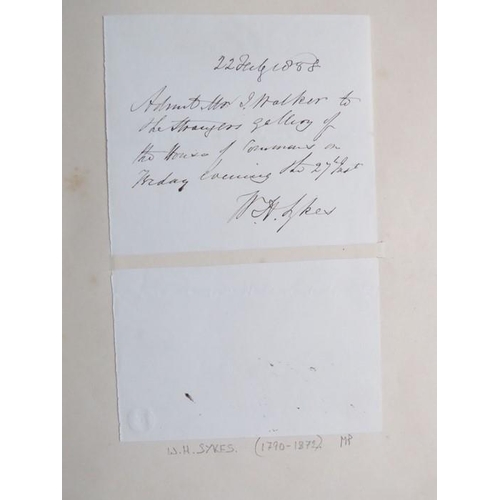 22 July 1858
Admit Mr J Walker to
the Strangers Gallery of
the House of Commons on
evening the 27th Inst
W.H. Sykes
W.H. SYKES. (1790-1872) MP